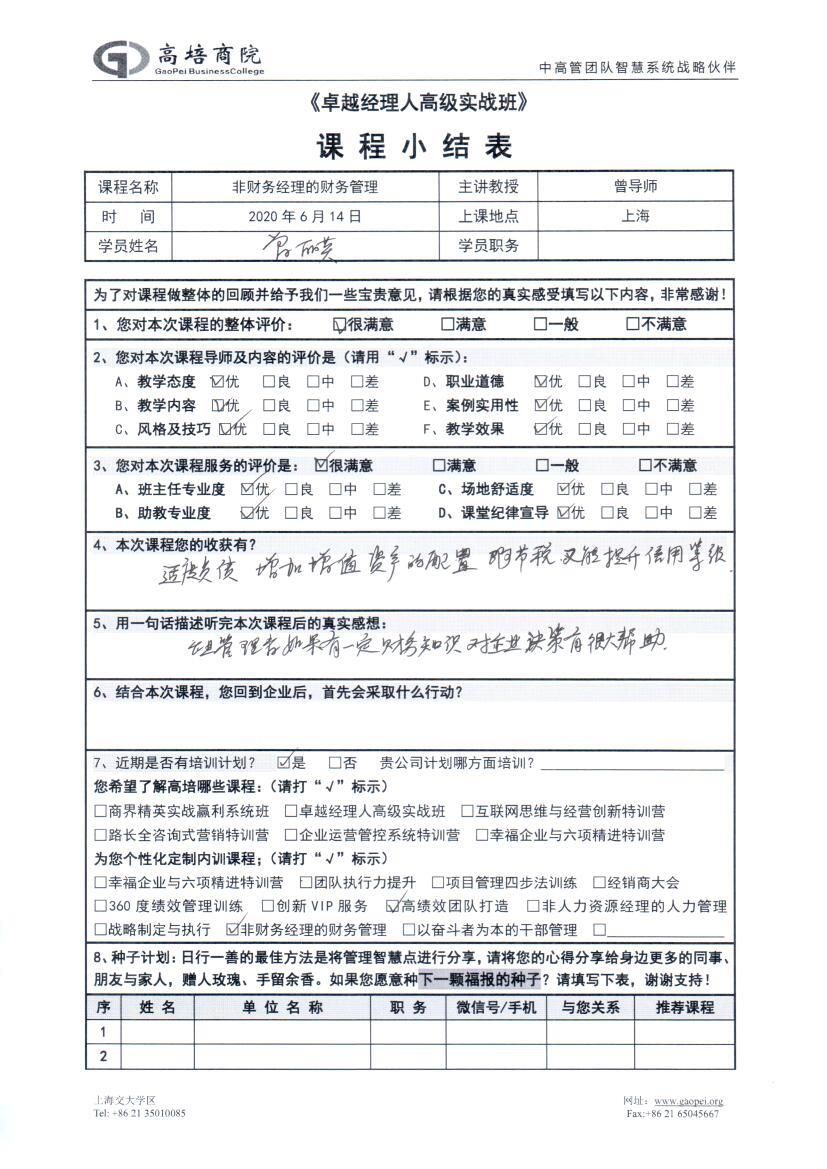 高培商院
GaoPei BusinessCollege
中高管团队智慧系统战略伙伴
《卓越经理人高级实战班》
课程小结表
课程名称 非财务经理的财务管理 主讲教授 曾导师
时 间 2020年6月14日 上课地点 上海
学员姓名 曾丽英 学员职务
为了对课程做整体的回顾并给予我们一些宝贵意见，请根据您的真实感受填写以下内容，非常感谢！
1、您对本次课程的整体评价： ☑很满意 □满意 □一般 □不满意
2、您对本次课程导师及内容的评价是（请用“√”标示）：
A、教学态度 ☑优 □良 □中 □差 D、职业道德 ☑优 □良 □中 □差
B、教学内容 ☑优 □良 □中 □差 E、案例实用性 ☑优 □良 □中 □差
C、风格及技巧 ☑优 □良 □中 □差 F、教学效果 ☑优 □良 □中 □差
3、您对本次课程服务的评价是： ☑很满意 □满意 □一般 □不满意
A、班主任专业度 ☑优 □良 □中 □差 C、场地舒适度 ☑优 □良 □中 □差
B、助教专业度 ☑优 □良 □中 □差 D、课堂纪律宣导 ☑优 □良 □中 □差
4、本次课程您的收获有？
适度负债 增加增值资产的配置 即节税又能提升信用等级.
5、用一句话描述听完本次课程后的真实感想：
管理者如果有一定财务知识对企业决策有很大帮助.
6、结合本次课程，您回到企业后，首先会采取什么行动？
7、近期是否有培训计划？ ☑是 □否 贵公司计划哪方面培训？
您希望了解高培哪些课程：（请打“√”标示）
□商界精英实战赢利系统班 □卓越经理人高级实战班 □互联网思维与经营创新特训营
□路长全咨询式营销特训营 □企业运营管控系统特训营 □幸福企业与六项精进特训营
为您个性化定制内训课程；（请打“√”标示）
□幸福企业与六项精进特训营 □团队执行力提升 □项目管理四步法训练 □经销商大会
□360度绩效管理训练 □创新VIP服务 ☑高绩效团队打造 □非人力资源经理的人力管理
□战略制定与执行 ☑非财务经理的财务管理 □以奋斗者为本的干部管理 □
8、种子计划：日行一善的最佳方法是将管理智慧点进行分享，请将您的心得分享给身边更多的同事、
朋友与家人，赠人玫瑰、手留余香。如果您愿意种下一颗福报的种子？请填写下表，谢谢支持！
序 姓名 单位名称 职务 微信号/手机 与您关系 推荐课程
1
2
上海交大学区 网址：www.gaopei.org
Tel: +86 21 35010085 Fax:+86 21 65045667